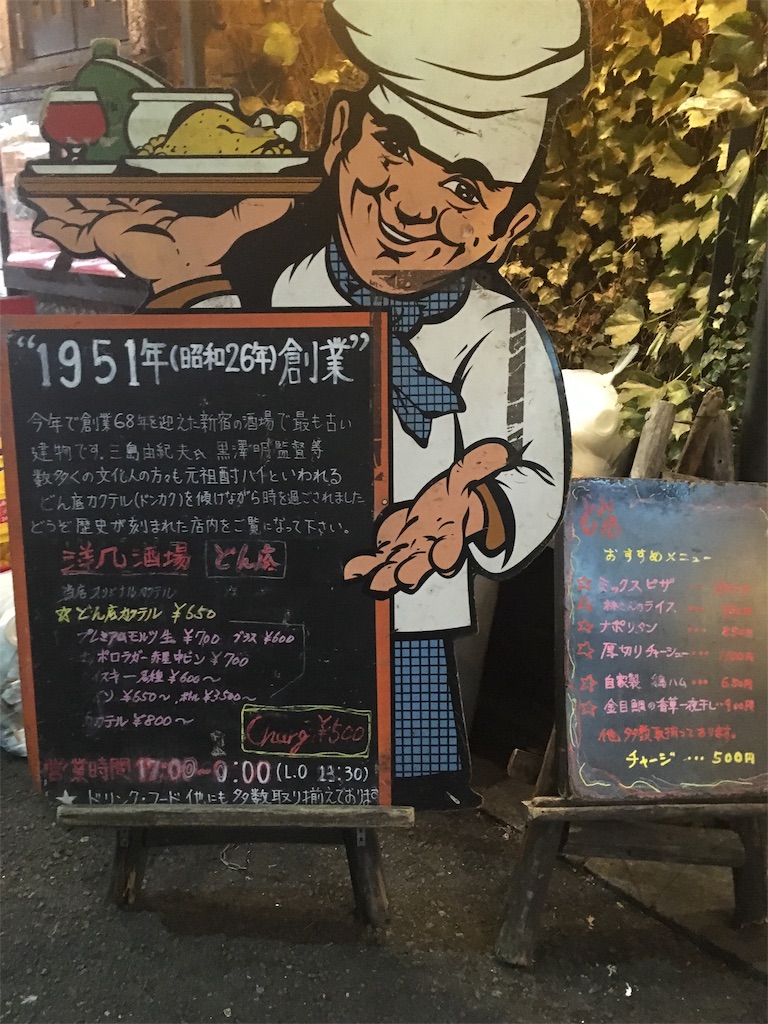 “1951年(昭和26年)創業”
今年で創業68年を迎えた新宿の酒場で最も古い
建物です。三島由紀夫氏 黒澤明監督等
数多くの文化人の方々も元祖酎ハイといわれる
どん底カクテル(ドンカク)を傾けながら時を過ごされました
どうぞ歴史が刻まれた店内をご覧になって下さい。
洋風酒場 どん底
当店オリジナルカクテル
☆どん底カクテル ¥650
プレミアムモルツ生 ¥700 グラス ¥600
ポロラガー赤星中ビン ¥700
イスキー各種 ¥600〜
¥650〜 ¥3500〜
カクテル ¥800〜
Charg ¥500
営業時間 17:00〜0:00 (L.O 23:30)
★ドリンク・フード他にも多数取り揃えております
どん底
おすすめメニュー
☆ミックスピザ
☆林さんのライス ・・・
☆ナポリタン ・・・ 850円
☆厚切りチャーシュー・・
☆自家製 鴨ハム ・・・ 650円
☆金目鯛の香草一夜干し・・900円
他 多数取揃っております。
チャージ ・・・ 500円